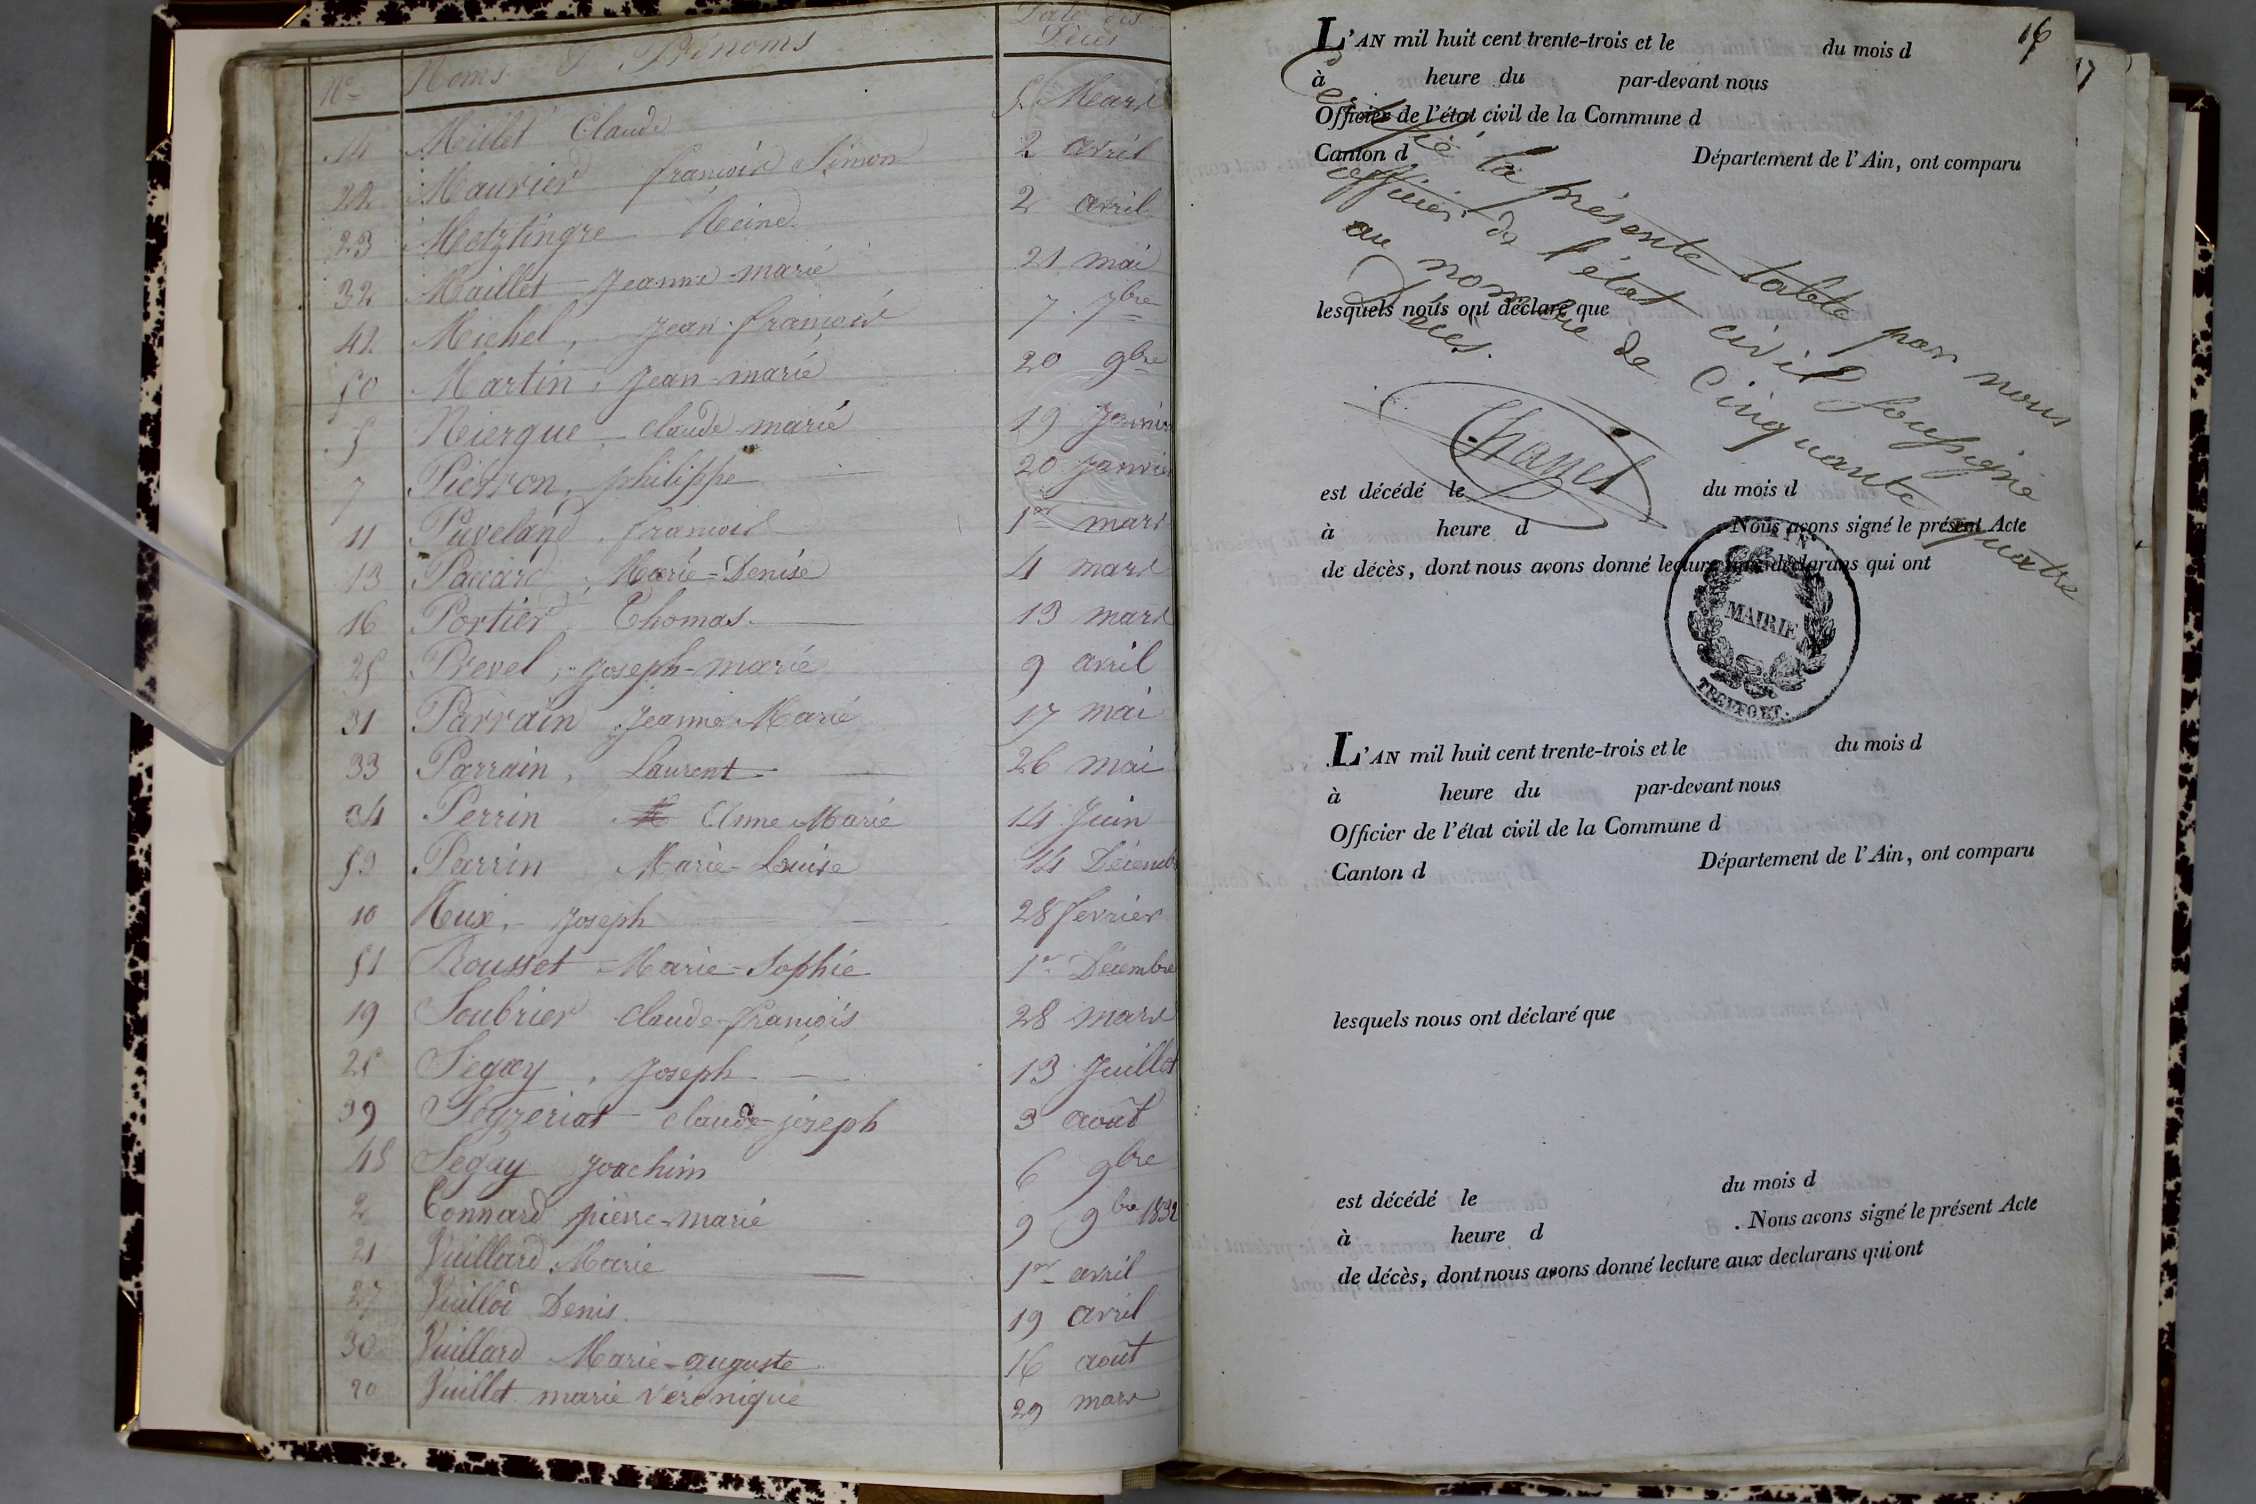 Nos Noms & Prénoms Date des Décès
14 Millet Claude 5 Mars
22 Maurier françois Simon 2 avril
23 Metzlingre Reine 2 avril
32 Maillet Jeanne-marie 21 mai
42 Michel, Jean-françois 7 7bre
50 Martin, Jean-marie 20 9bre
5 Nierque, claude marie 19 Janvier
7 Pierron, philippe 20 Janvier
11 Puveland, françois 1er mars
13 Paccard, Marie=Denise 4 mars
16 Portier, Thomas. 13 mars
25 Prevel, Joseph-marie 9 avril
31 Parrain Jeanne Marie 17 mai
33 Parrain, Laurent 26 mai
34 Perrin Anne Marie 14 Juin
53 Parrin Marie-Louise 14 Décembre
10 Rux, Joseph 28 fevrier
51 Rousset Marie-Sophie 1er Décembre
19 Soubrier claude-françois 28 mars
28 Segay, Joseph 13 Juillet
39 Seyzeriat claude-joseph 3 août
48 Segay Joachim 6 9bre
2 Connard pierre-marie 9 9bre 1832
21 Vuillard Marie 1er avril
27 Vuillod Denis. 19 avril
30 Vuillard Marie-auguste 16 août
20 Vuillet marie véronique 29 mars
16
17
L'AN mil huit cent trente-trois et le du mois d
à heure du par-devant nous
Officier de l'état civil de la Commune d
Canton d Département de l'Ain, ont comparu
lesquels nous ont déclaré que
est décédé le du mois d
à heure d . Nous avons signé le présent Acte
de décès, dont nous avons donné lecture aux déclarans qui ont
Certifié la présente table par nous
officier de l'état civil soussigné
au nombre de Cinquante quatre
Décès.
Chanel
MAIRIE
TREFFORT.
L'AN mil huit cent trente-trois et le du mois d
à heure du par-devant nous
Officier de l'état civil de la Commune d
Canton d Département de l'Ain, ont comparu
lesquels nous ont déclaré que
est décédé le du mois d
à heure d . Nous avons signé le présent Acte
de décès, dont nous avons donné lecture aux declarans qui ont